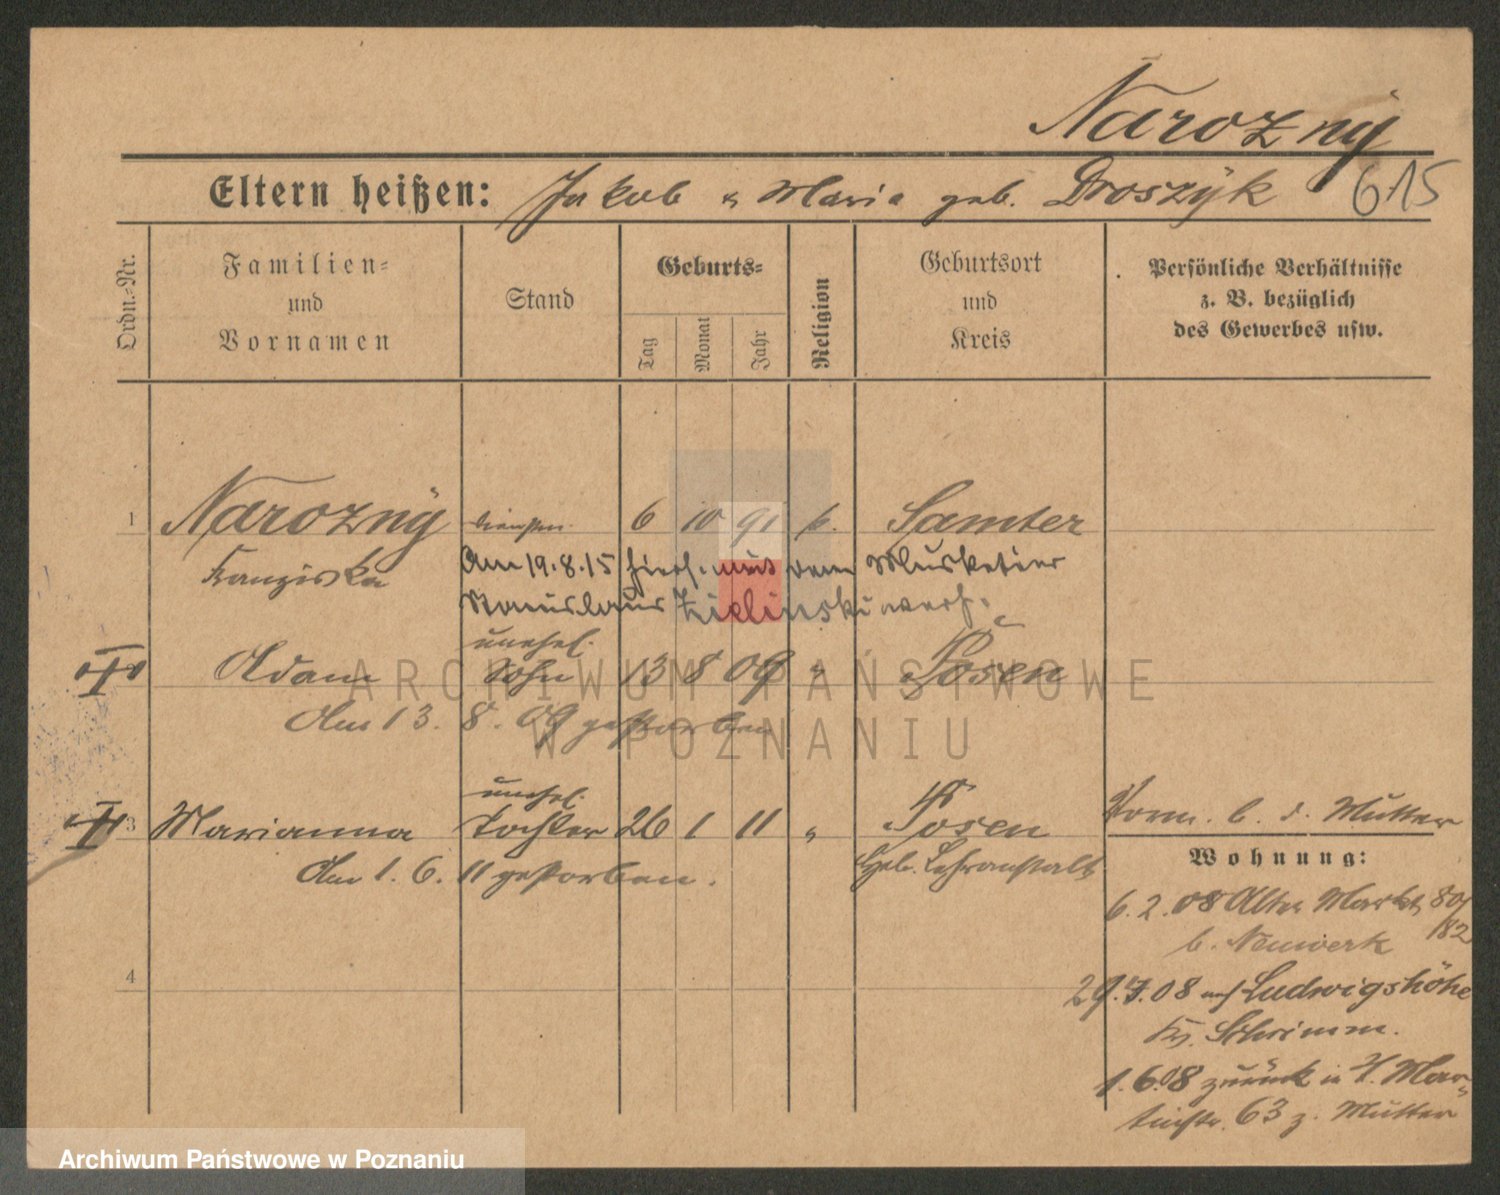 Narozny
Eltern heißen: Jakob u Maria geb. Droszÿk 615
Ordn.-Nr.
Familien-
und
Vornamen
Stand
Geburts-
Tag
Monat
Jahr
Religion
Geburtsort
und
Kreis
Persönliche Verhältnisse
z. B. bezüglich
des Gewerbes usw.
1 Narozny 6 10 91 k. Samter
Franziska Am 19.8.15 hierf. mit dem Musketier
Stanislaus Zielinski verh.
unehel.
Adam Sohn 13 8 09 " Posen
Am 13. 8. 09 gestorben
unehel.
3 Marianna Tochter 26 1 11 " Posen
Am 1. 6. 11 gestorben. Heb. Lehranstalt
Vorm. b. d. Mutter
Wohnung:
6.2.08 Alter Markt 80/
182
b. Neuwerk
4
29.4.08 auf Ludwigshöhe
Kr. Schrimm.
1.6.08 zurück in H. Mar-
tinstr. 63 z. Mutter
ARCHIWUM PAŃSTWOWE
W POZNANIU
Archiwum Państwowe w Poznaniu